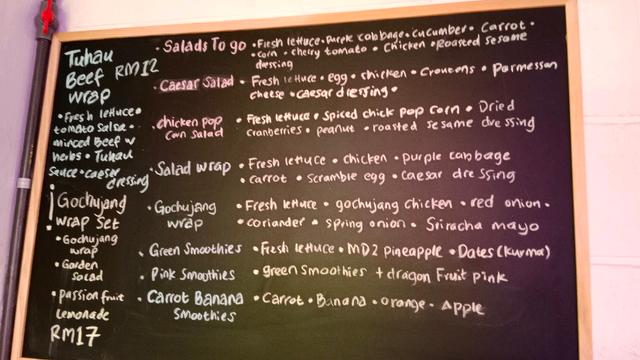 Tuhau
Beef RM12
wrap
• Fresh lettuce •
tomato salsa •
minced Beef w
herbs • Tuhau
sauce • caesar
dressing
! Gochujang
wrap Set
• Gochujang
wrap
• Garden
salad
• passion fruit
Lemonade
RM17
• Salads To go • Fresh lettuce • Purple cabbage • cucumber • Carrot •
corn • cherry tomato • Chicken • Roasted sesame
dressing
• Caesar Salad • Fresh lettuce • egg • chicken • Croutons • Parmesan
cheese • caesar dressing •
• chicken pop
corn salad
Fresh lettuce • Spiced chick pop corn • Dried
cranberries • peanut • roasted sesame dressing
• Salad wrap • Fresh lettuce • chicken • purple cabbage
• carrot • scramble egg • caesar dressing
• Gochujang
wrap
• Fresh lettuce • gochujang chicken • red onion •
• coriander • spring onion • Sriracha mayo
• Green Smoothies • Fresh lettuce • MD2 pineapple • Dates (kurma)
• Pink Smoothies • green smoothies + dragon Fruit pink
• Carrot Banana
Smoothies
• Carrot • Banana • orange • Apple